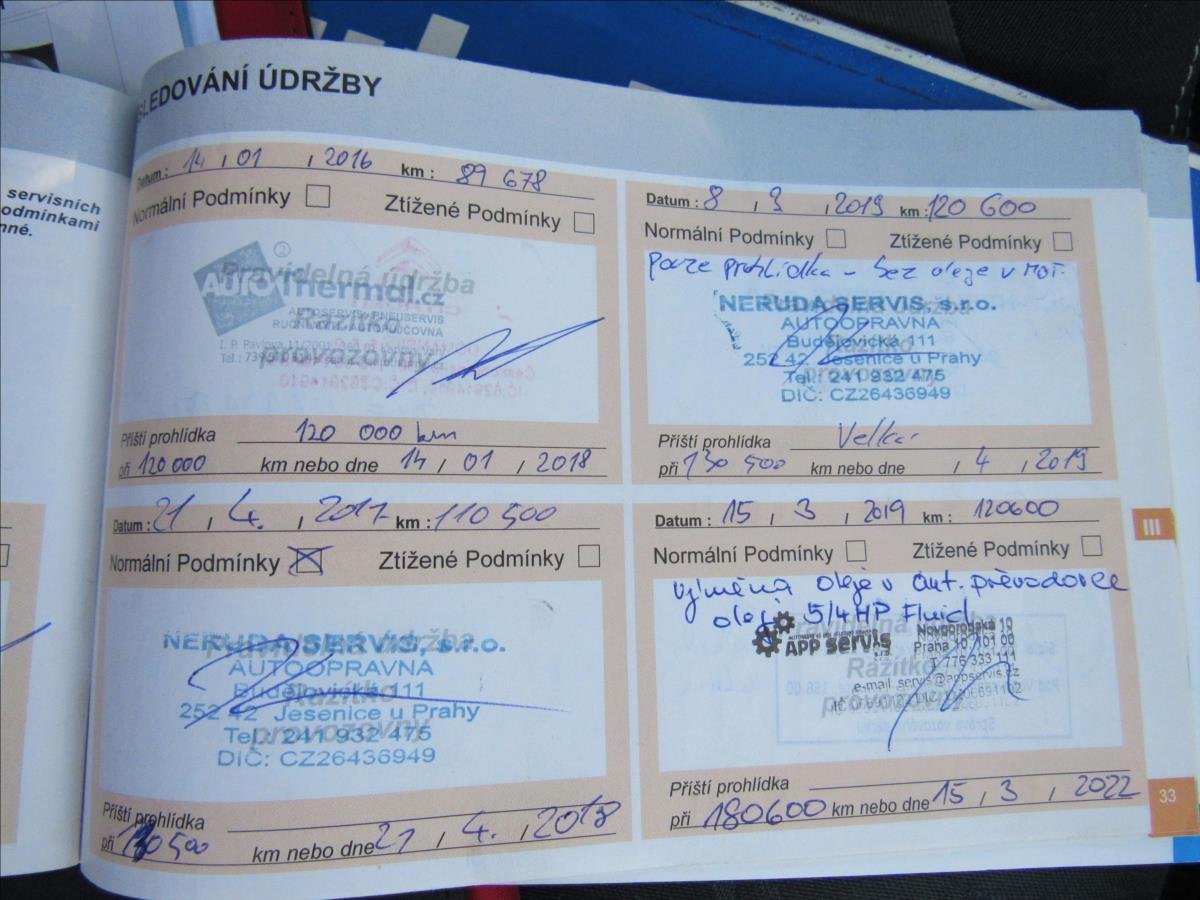 SLEDOVÁNÍ ÚDRŽBY
servisních
odmínkami
nné.
Datum : 14 , 01 , 2016 km : 89 678
Normální Podmínky Ztížené Podmínky
Pravidelná údržba
AUTOThermal.cz
AUTOSERVIS, PNEUSERVIS
Razítko
provozovny
Příští prohlídka 120 000 km
při 120 000 km nebo dne 14 , 01 , 2018
Datum : 21 , 4. , 2017 km : 110 500
Normální Podmínky Ztížené Podmínky
NERUDA SERVIS, s.r.o.
AUTOOPRAVNA
Budějovická 111
252 42 Jesenice u Prahy
Tel.: 241 932 475
DIČ: CZ26436949
Razítko
provozovny
Příští prohlídka
při 130 500 km nebo dne 21 , 4. , 2018
Datum : 8 , 3 , 2019 km : 120 600
Normální Podmínky Ztížené Podmínky
pouze prohlídka - bez oleje v mot.
NERUDA SERVIS, s.r.o.
AUTOOPRAVNA
Budějovická 111
252 42 Jesenice u Prahy
Tel.: 241 932 475
DIČ: CZ26436949
Razítko
provozovny
Příští prohlídka Velká
při 130 500 km nebo dne , 4 , 2019
Datum : 15 , 3 , 2019 km : 120600
Normální Podmínky Ztížené Podmínky
Výměna oleje v aut. převodovce
olej 5/4HP Fluid
APP servis
Novopořádská 10
Praha 10 101 00
T 776 333 111
e-mail servis@appservis.cz
Razítko
provozovny
Příští prohlídka
při 180600 km nebo dne 15 , 3 , 2022
III
33